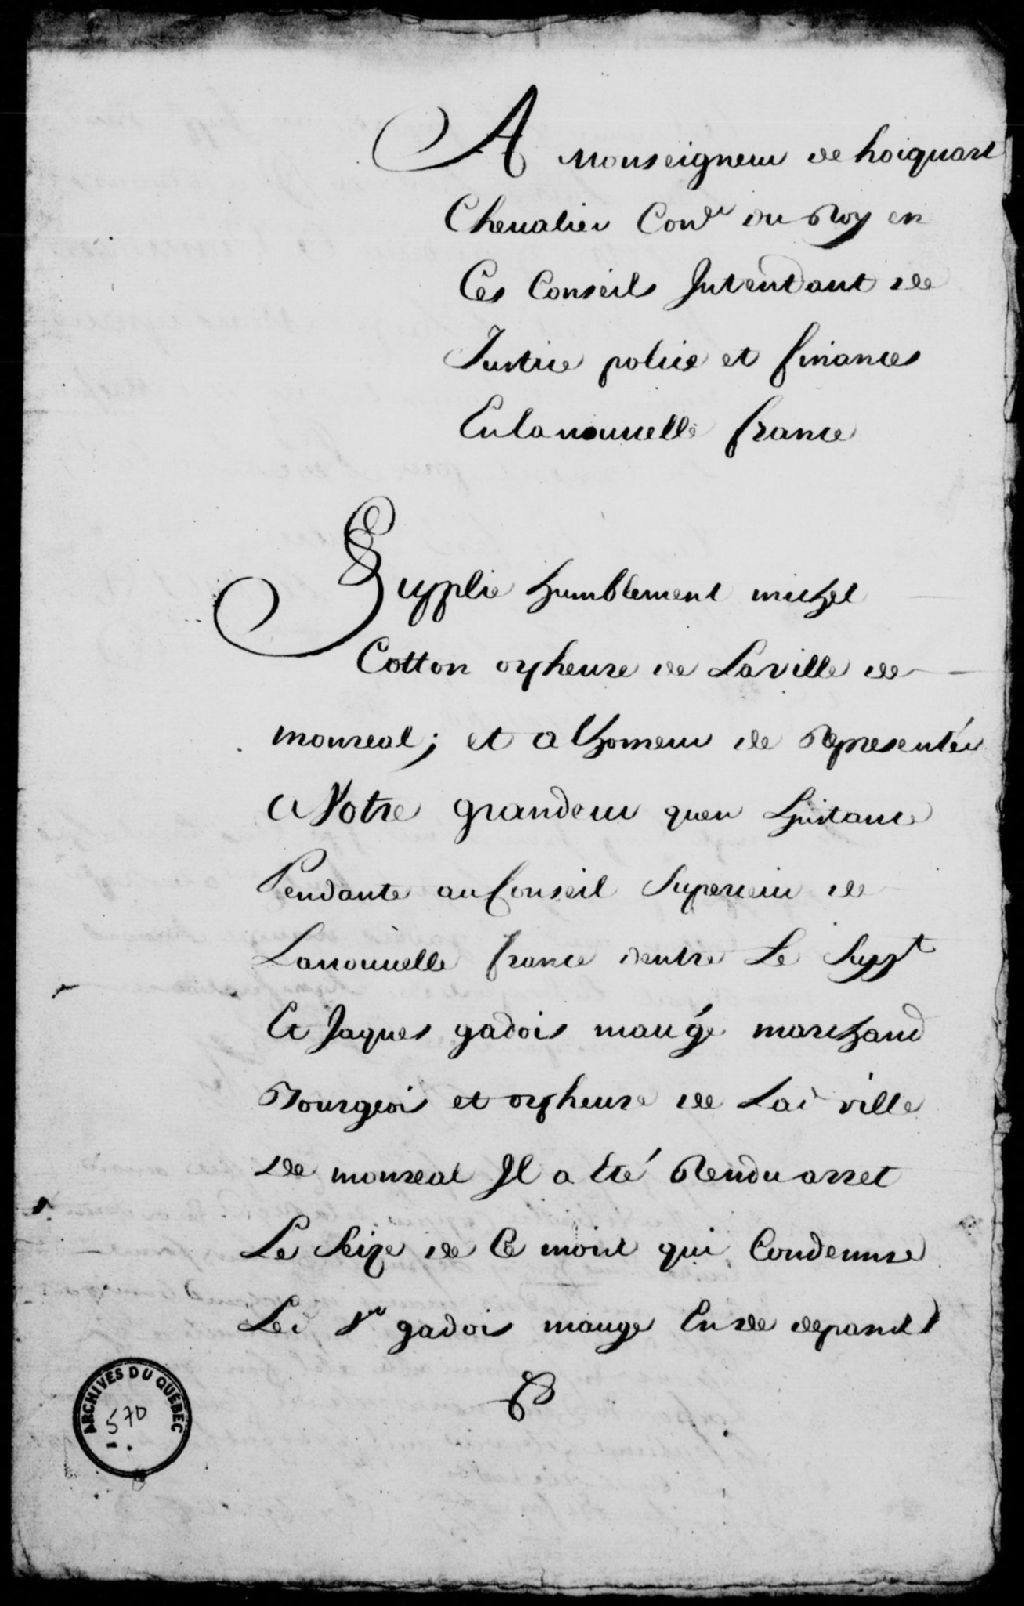 A Monseigneur de hocquart
Cheualier Con.er du Roy en
Ces Conseils Intendant de
Justice police et finances
En la nouuelle france
Supplie humblement michel
Cotton orpheure de La ville de
monreal; et a l'honneur de Representér
A Votre grandeur quen Linstance
Pendante au Conseil Superieur de
La nouuelle france dentre Le Supp.t
Et Jaques gadois maugé marchand
Bourgeois et orpheure de Lad ville
de monreal Il a été Rendu arret
Le Seize de Ce mois qui Condemne
Led Sr gadois mauge En de depand
ARCHIVES DU QUÉBEC
570